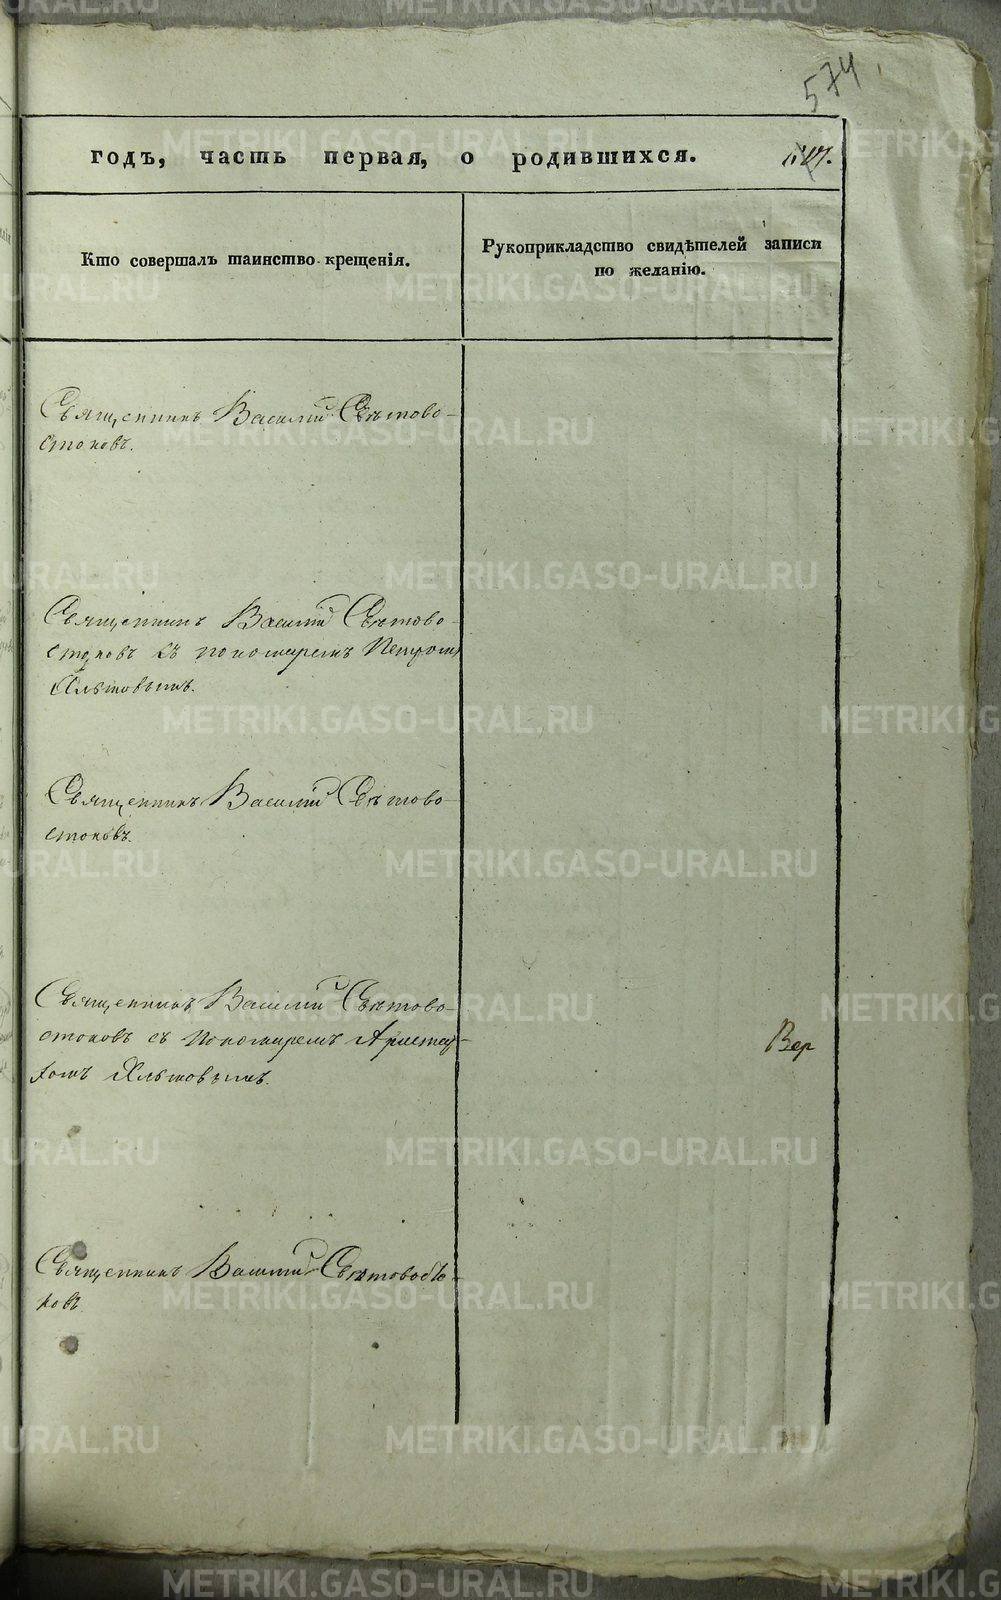 574
годъ, часть первая, о родившихся.
Кто совершалъ таинство крещенія.
Рукоприкладство свидѣтелей записи
по желанію.
Священникъ Василій Свѣтово-
стоковъ.
Священникъ Василій Свѣтово-
стоковъ съ пономаремъ Петромъ
Священникъ Василій Свѣтово-
стоковъ.
Священникъ Василій Свѣтово-
стоковъ съ Пономаремъ Ариста-
хомъ
Вер
Священникъ Василій Свѣтовосто-
ковъ.
METRIKI.GASO-URAL.RU